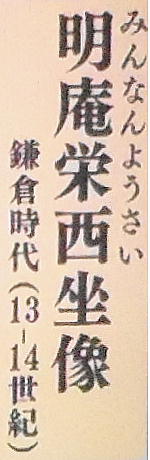 みんなんようさい
明庵栄西坐像
鎌倉時代(13-14世紀)